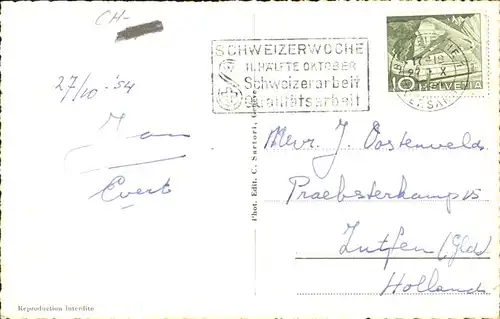 CH-
27/10 - '54
Evert
SCHWEIZERWOCHE
II. HÄLFTE OKTOBER
Schweizerarbeit
Qualitätsarbeit
10
HELVETIA
Mevr. J. Oostenveld
Zutfen (Gld)
Holland
Phot. Edit. C. Sartori, Genève
Reproduction Interdite